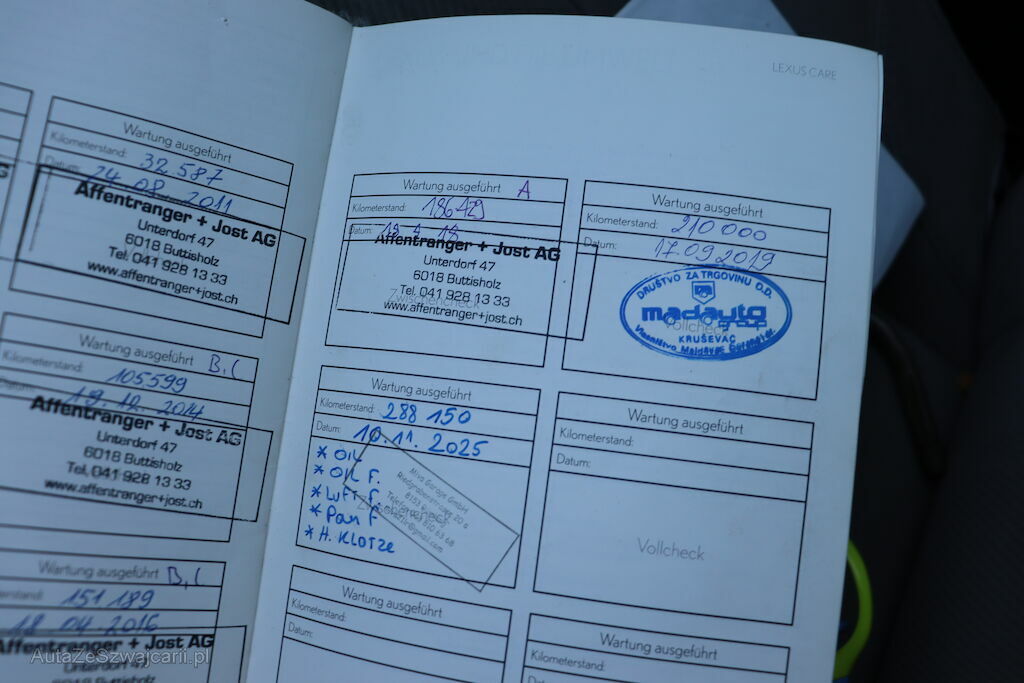 LEXUS CARE
Wartung ausgeführt
Kilometerstand: 32 587
Datum: 24 08. 2011
Affentranger + Jost AG
Unterdorf 47
6018 Buttisholz
Tel. 041 928 13 33
www.affentranger+jost.ch
Wartung ausgeführt B, C
Kilometerstand: 105599
19. 12. 2014
Affentranger + Jost AG
Unterdorf 47
6018 Buttisholz
Tel. 041 928 13 33
www.affentranger+jost.ch
Wartung ausgeführt B, C
151 189
18 04. 2016
Affentranger + Jost AG
Unterdorf 47
6018 Buttisholz
Wartung ausgeführt A
Kilometerstand:
Datum:
Affentranger + Jost AG
Unterdorf 47
6018 Buttisholz
Tel. 041 928 13 33
Zwischencheck
www.affentranger+jost.ch
Wartung ausgeführt
Kilometerstand: 210 000
Datum: 17.09.2019
DRUŠTVO ZA TRGOVINU O.D.
madauto
group
Vollcheck
KRUŠEVAC
Wartung ausgeführt
Kilometerstand: 288 150
Datum: 10. 11. 2025
* OIL
* OIL F.
* LUFT F.
* Pollen F
* H. KLÖTZE
Miva Garage GmbH
Wartung ausgeführt
Kilometerstand:
Datum:
Vollcheck
Wartung ausgeführt
Kilometerstand:
Datum:
Wartung ausgeführt
Kilometerstand:
Datum:
AutaZeSzwajcarii.pl